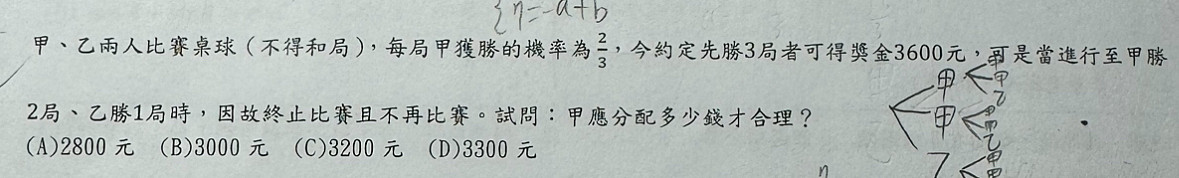 η=-a+b
甲、乙兩人比賽桌球(不得和局),每局甲獲勝的機率為2/3,今約定先勝3局者可得獎金3600元,可是當進行至甲勝
2局、乙勝1局時,因故終止比賽且不再比賽。試問:甲應分配多少錢才合理?
(A)2800 元 (B)3000 元 (C)3200 元 (D)3300 元
甲 甲 甲 乙
甲 甲 甲 乙
乙 甲 甲